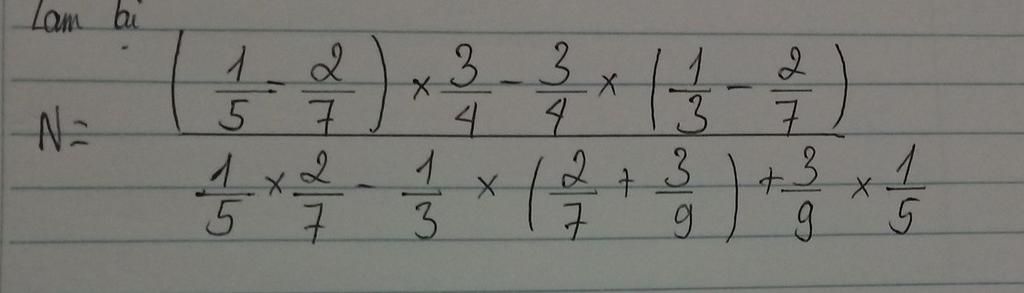 Làm bì
N = ((1/5 - 2/7) × 3/4 - 3/4 × (1/3 - 2/7)) / (1/5 × 2/7 - 1/3 × (2/7 + 3/9) + 3/9 × 1/5)